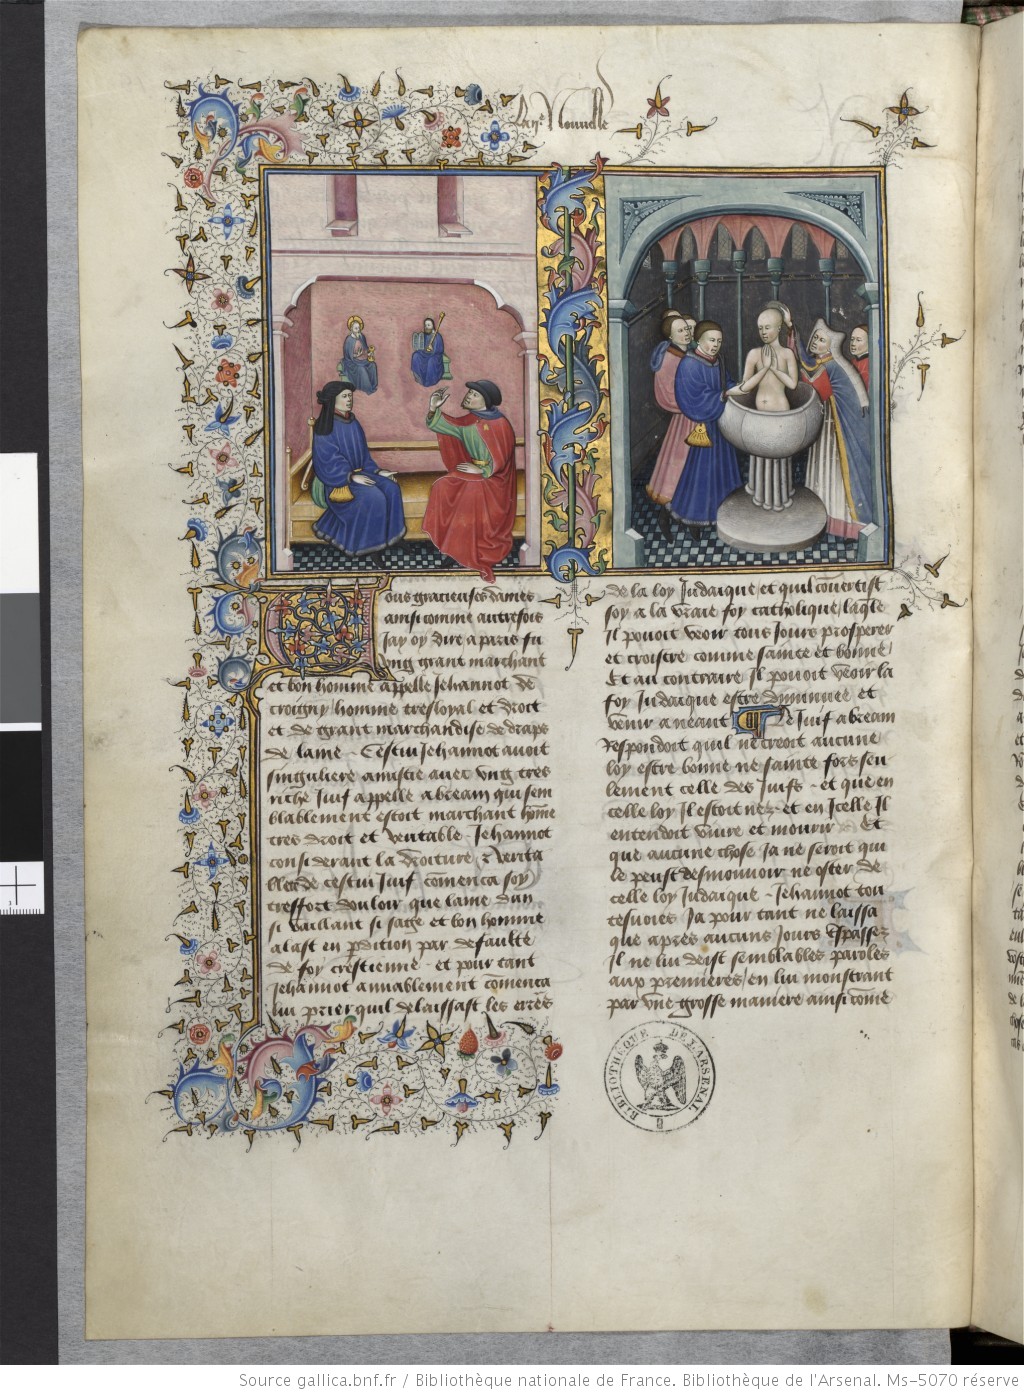 La .ii.e Nouvelle
Vous gracieuses dames
ainsi comme autresfois
Jay oy dire a paris fu
ung grant marchant
et bon homme appelle Jehannot de
, homme tresloyal et droit
et de grant marchandise de draps
de laine . Cestui Jehannot avoit
singuliere amistie avec ung tres
riche Juif appelle abream qui sem
blablement estoit marchant hõme
tres droit et veritable . Jehannot
considerant la droiture & verita
de cestui Juif comenca soy
tresfort douloir que lame dun
si vaillant si sage et bon homme
alast en pdition par defaulte
de foy crestienne . et pour tant
Jehannot amiablement comenca
lui prier quil delaissast les errẽs
de la loy Judaique et quil cõvertist
soy a la vraie foy catholique laqle
Il pouoit veoir tous Jours prosperer
et croistre comme sainte et bonne
Et au contraire Il pouoit veoir la
foy Judaique estre diminuee et
venir a neant Le Juif abream
Respondoit quil ne creoit aucune
loy estre bonne ne sainte fors seu
lement celle des Juifs . et que en
celle loy Il estoit nez . et en Icelle Il
entendoit vivre et mourir . Et
que aucune chose Ja ne seroit qui
le peust desmouvoir ne oster de
celle loy Judaique . Jehannot tou
tesvoies Ja pour tant ne laissa
que apres aucuns Jours espassez
Il ne lui deist semblables paroles
aux premieres en lui monstrant
par une grosse maniere ainsi cõme
BIBLIOTHEQUE DE L'ARSENAL
Source gallica.bnf.fr / Bibliothèque nationale de France. Bibliothèque de l'Arsenal. Ms-5070 réserve